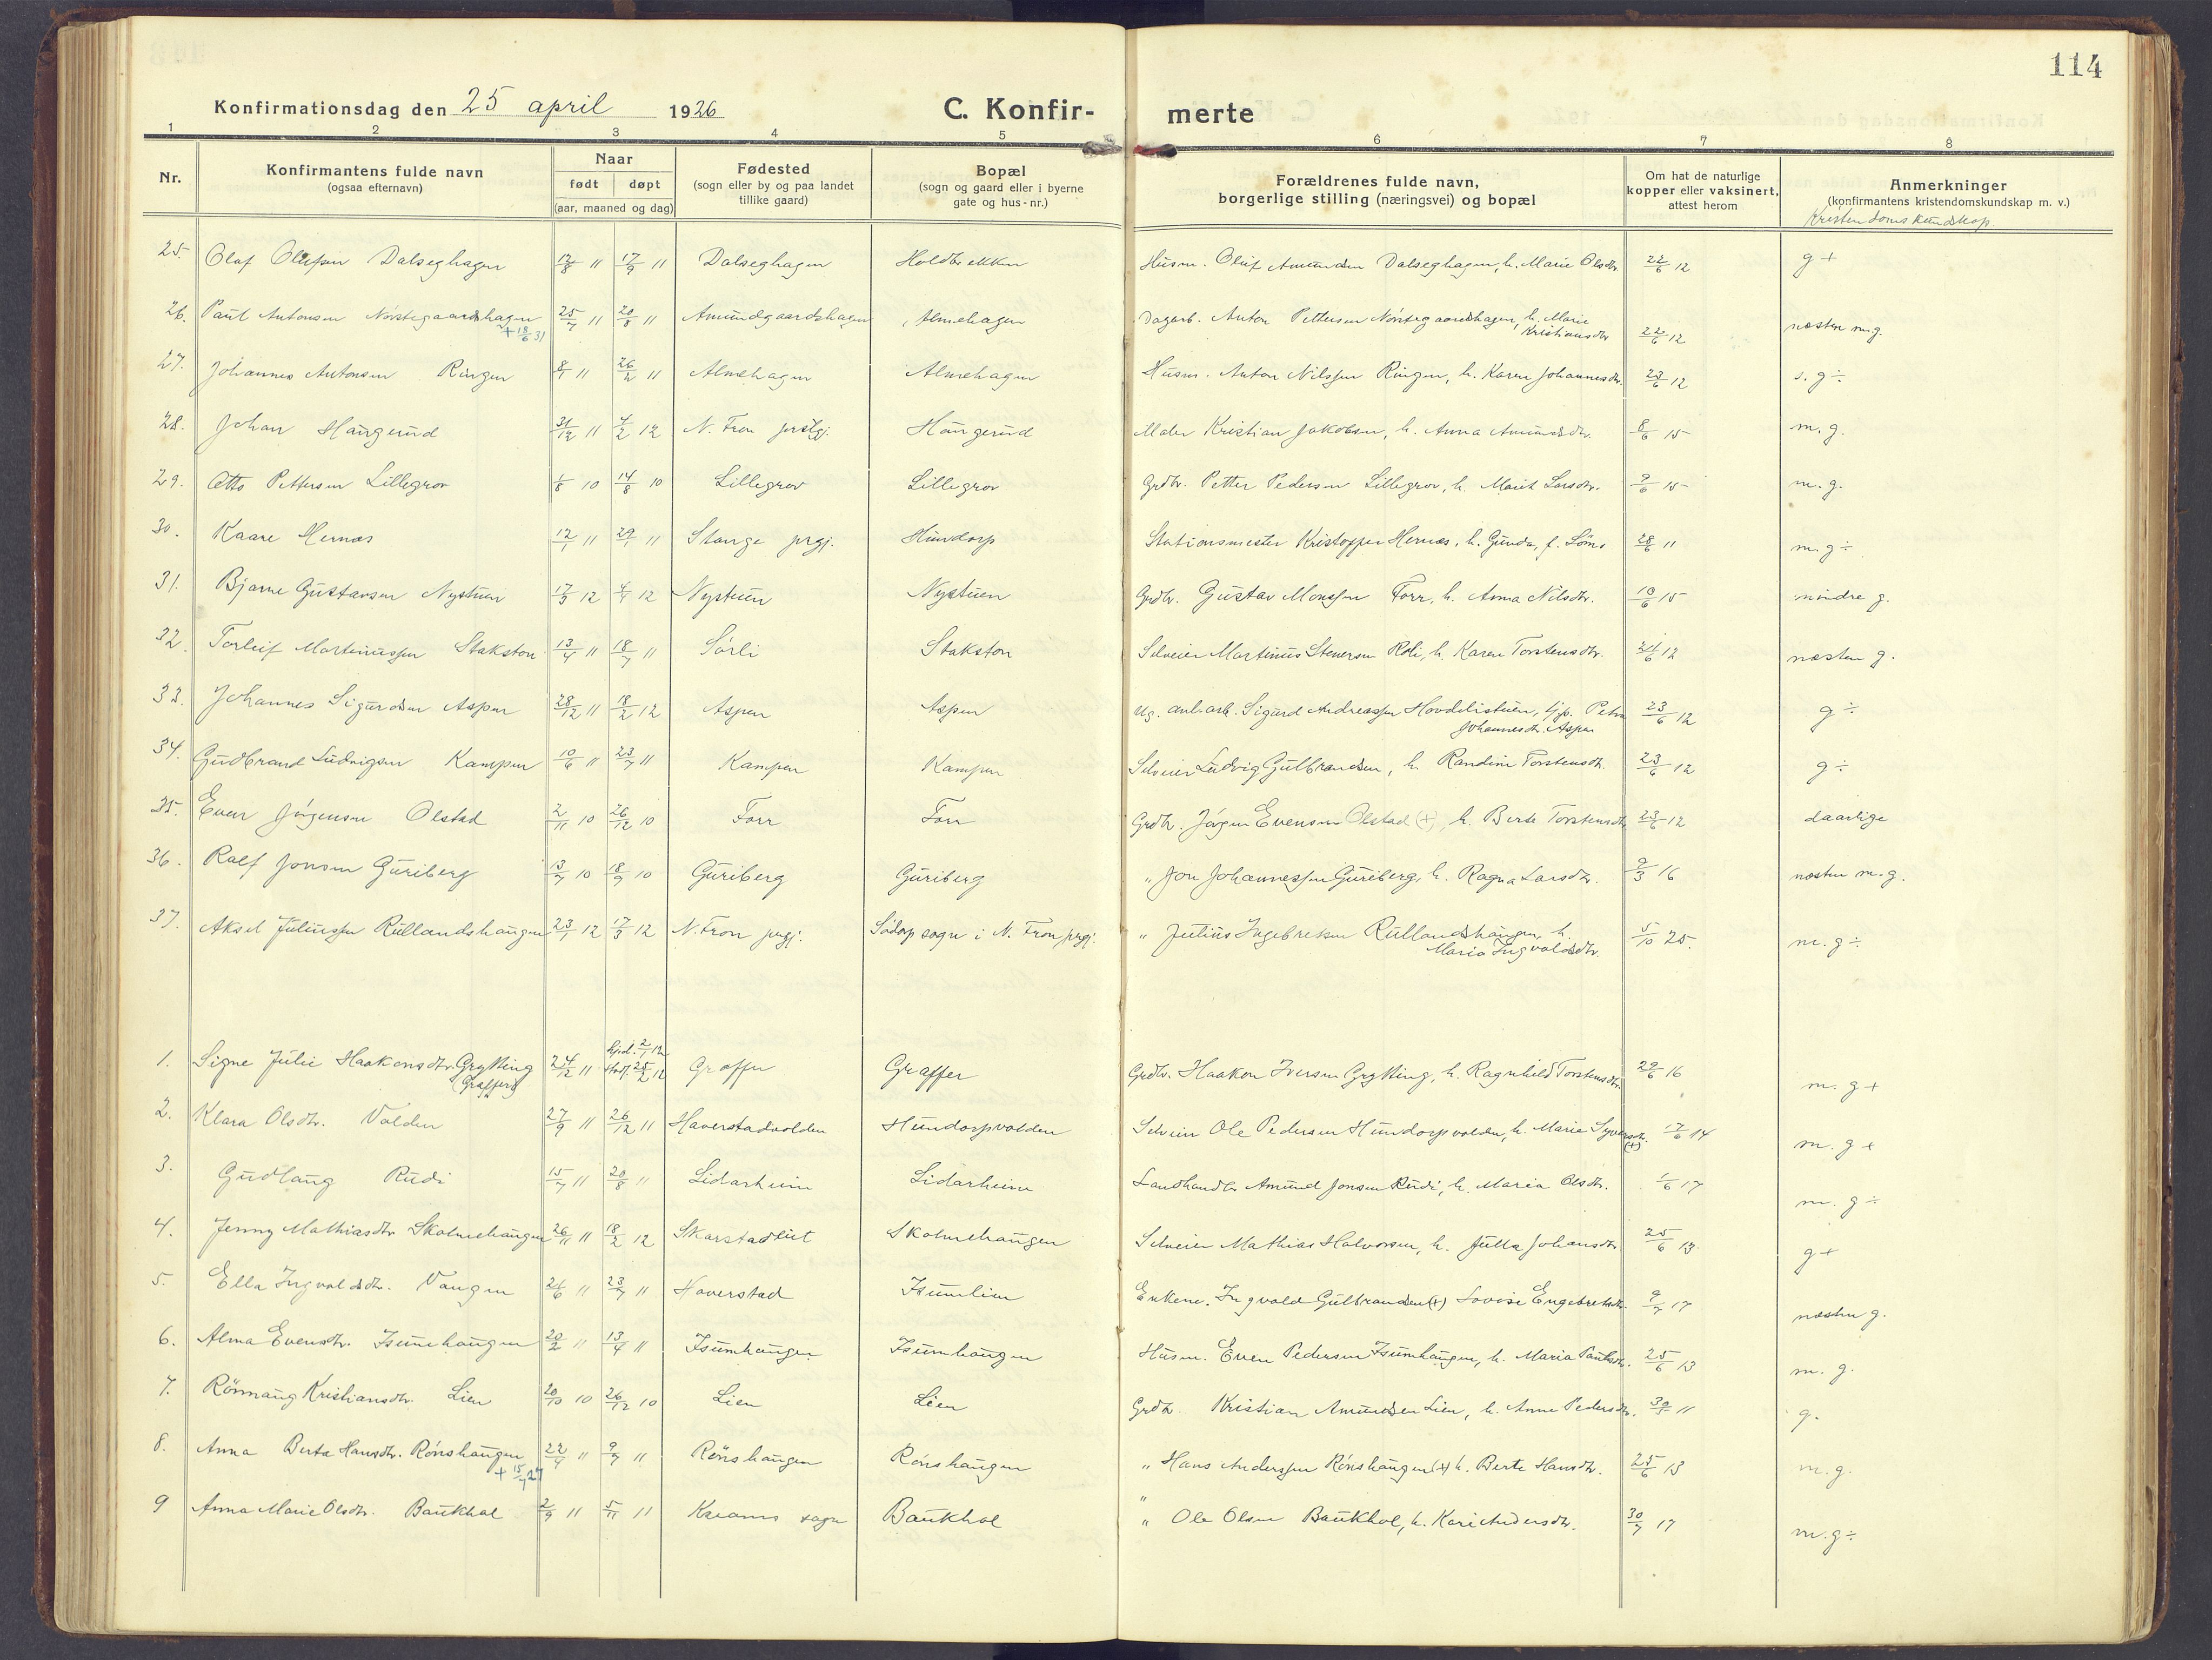 114
Konfirmationsdag den 25 april 1926
C. Konfirmerte
1 2 3 4 5 6 7 8
Nr.
Konfirmantens fulde navn
(ogsaa efternavn)
Naar
født døpt
(aar, maaned og dag)
Fødested
(sogn eller by og paa landet
tillike gaard)
Bopæl
(sogn og gaard eller i byerne
gate og hus-nr.)
Forældrenes fulde navn,
borgerlige stilling (næringsvei) og bopæl
Om hat de naturlige
kopper eller vaksinert,
attest herom
Anmerkninger
(konfirmantens kristendomskundskap m. v.)
Kristendomskundskap.
25. Olaf Olufsen Dalseghagen 12/8 11 17/9 11 Dalseghagen Husm. Oluf Amundsen Dalseghagen, h. Marie Olsdtr. 22/6 12 g +
26. Paul Antonsen Nörstegaardshagen 25/7 11 20/8 11 Amundgaardshagen Almehagen Dagarb. Anton Pettersen Nörstegaardshagen, h. Marie
+ 18/6 31 Kristiansdtr 22/6 12 næsten m.g.
27. Johannes Antonsen Ringen 8/1 11 26/2 11 Almehagen Almehagen Husm. Anton Nilssen Ringen, h. Karen Johannesdtr. 23/6 12 s. g ÷
28. Johan Haugerud 31/12 11 4/2 12 N. Fron prstgj. Haugerud Maler Kristian Jakobsen, h. Anna Amundsdtr. 8/6 15 m. g.
29. Otto Pettersen Lillegrov 1/8 10 14/8 10 Lillegrov Lillegrov Grdbr. Petter Pedersen Lillegrov, h. Marit Larsdtr. 9/6 15 m. g.
30. Kaare Hernæs 12/1 11 29/1 11 Stange prgj. Hundorp Stationsmester Kristoffer Hernæs, h. Gunda, f. 28/6 11 m. g ÷
31. Bjarne Gustavsen Nystuen 17/3 12 4/4 12 Nystuen Nystuen Grdbr. Gustav Monssen Forr, h. Anna Nilsdtr. 10/6 15 mindre g.
32. Torleif Martinussen Stakston 13/4 11 18/7 11 Sörli Stakston Selveier Martinus Stenersen Roli, h. Karen Torstensdtr. 24/6 12 næsten g.
33. Johannes Sigurdsen Aspen 28/12 11 18/2 12 Aspen Aspen Ug. anl.arb. Sigurd Andreassen Hovdelistuen, Petra
Johannesdtr. Aspen 23/6 12 g ÷
34. Gudbrand Ludvigsen Kampen 10/6 11 23/7 11 Kampen Kampen Selveier Ludvig Gulbrandsen, h. Randine Torstensdtr. 23/6 12 g ÷
35. Even Jörgensen Olstad 2/11 10 26/12 10 Forr Forr Grdbr. Jörgen Evensen Olstad (+), h. Berte Torstensdtr 23/6 12 daarlige
36. Ralf Jonsen Guriberg 13/7 10 18/9 10 Guriberg Guriberg " Jon Johannessen Guriberg, h. Ragna Larsdtr. 9/3 16 næsten m.g.
37. Aksel Juliussen Rullandshaugen 23/1 12 17/3 12 N. Fron prgj. Södorp sogn i N. Fron prgj. " Julius Ingebretsen Rullandshaugen, h.
Maria Ingvoldsdtr. 5/10 25. m. g ÷
1. Signe Julie Haakonsdtr. Grytting 24/12 11 hjd. 2/1 12
(Graffer) stadf. 25/2 12 Graffer Graffer Grdbr. Haakon Iversen Grytting, h. Ragnhild Torstensdtr. 29/6 16 m. g +
2. Klara Olsdtr. Volden 27/9 11 26/12 11 Haverstadvolden Hundorpvolden Selveier Ole Pedersen Hundorpvolden, h. Marie Syversdtr. (+) 17/6 14 m. g +
3. Gudlaug Rudi 15/7 11 20/8 11 Lidarheim Lidarheim Landhandler Amund Jonsen Rudi, h. Maria Olsdtr. 1/6 17 m. g ÷
4. Jenny Mathiasdtr Skolmehaugen 26/11 11 18/2 12 Skarstadlit Skolmehaugen Selveier Mathias Halvorsen, h. Julla Johansdtr 25/6 13 g +
5. Ella Ingvoldsdtr. Vangen 21/6 11 23/7 11 Haverstad Isumlien Enkene. Ingvold Gulbrandsen (+) Lovise Engebretsdtr. 9/7 17 næsten g.
6. Alma Evensdtr. Isumhaugen 20/2 11 13/4 11 Isumhaugen Isumhaugen Husm. Even Pedersen Isumhaugen, h. Maria Paulsdtr. 25/6 13 m. g.
7. Rönnaug Kristiansdtr. Lien 20/10 10 26/12 10 Lien Lien Grdbr. Kristian Amundsen Lien, h. Anne Pedersdtr. 30/5 11 g.
8. Anna Berta Hansdtr. Rönshaugen 22/4 11 9/7 11 Rönshaugen Rönshaugen " Hans Anderssen Rönshaugen (+) h. Berte Hansdtr. 25/6 13 m. g.
+ 15/7 27
9 Anna Marie Olsdtr. Baukhol 2/9 11 5/11 11 Kvams sogn Baukhol " Ole Olsen Baukhol, h. Kari Andersdtr. 30/7 17 m. g ÷